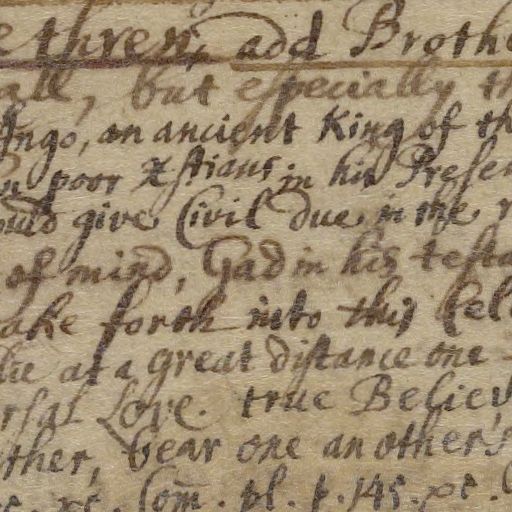 ethren, add Brothe
all, but especially th
Ingo, an ancient King of th
poor Xstians. in his Presen
ould give Civil due in the r
of mind, Gad in his testa
ake forth into this Cell
lie at a great distance one
rsal Love. true Believ
other, bear one another's
&c. Com. pl. p. 145. &c.